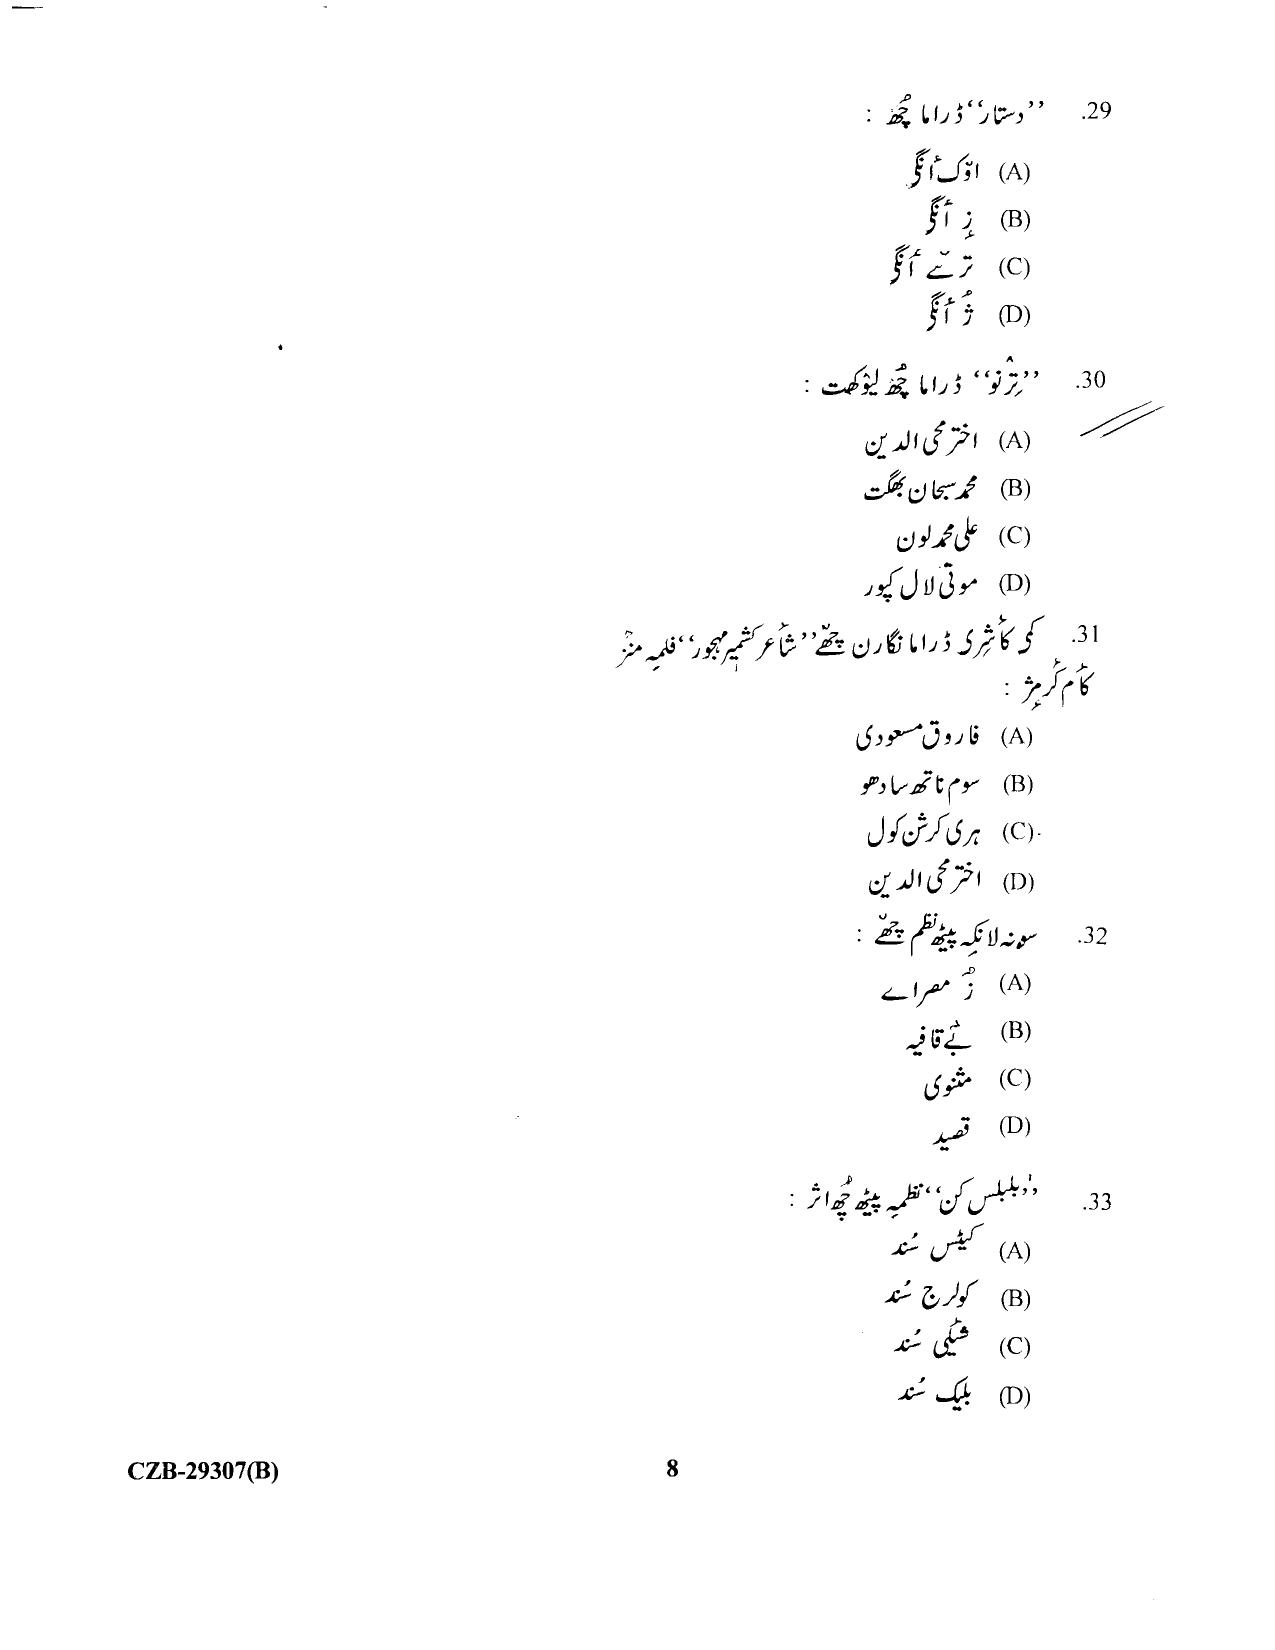 29. ’’دستار‘‘ ڈراما چُھ :
(A) اوٚک أنگۍ
(B) زٕ أنگۍ
(C) ترٛےٚ أنگۍ
(D) ژُ أنگۍ
30. ’’ترٛنو‘‘ ڈراما چُھ لیوٚکھت :
(A) اختر محی الدین
(B) محمد سبحان بھگت
(C) علی محمد لون
(D) موتی لال کپور
31. کٔمۍ کٲشرۍ ڈراما نگارن چھےٚ ’’شٲعر کشمیر مہجور‘‘ فلمہِ منٛز
کٲم کٔرمٕژ :
(A) فاروق مسعودی
(B) سوم ناتھ سادھو
(C) ہری کرشن کول
(D) اختر محی الدین
32. سونہ لانکہِ پیٹھ نظم چھےٚ :
(A) زُ مصراے
(B) بےٚ قافیہ
(C) مثنوی
(D) قصید
33. ’’بلبلس کن‘‘ نظمہِ پیٹھ چُھ اثر :
(A) کیٹس سُند
(B) کولرج سُند
(C) شیلی سُند
(D) بلیک سُند
CZB-29307(B)
8